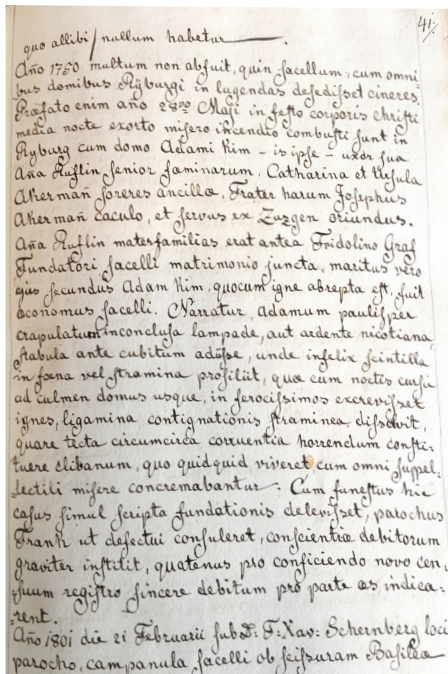 417
quo allibi / nullum habetur.
Año 1750 multum non abfuit, quin sacellum, cum omni-
bus domibus Ryburgi in lugendas desedisset cineres.
Præfato enim año 28vo Maji in festo corporis christi
media nocte exorto misero incendio combusti sunt in
Ryburg cum domo Adami Kim – is ipse – uxor sua
Aña Ruflin senior faminarum, Catharina et Ursula
Akermañ sorores ancillæ, Frater harum Josephus
Akermañ caculo, et servus ex Zuzgen oriundus.
Aña Ruflin materfamilias erat antea Fridolino Graf
Fundatori sacelli matrimonio juncta, maritus vero
ejus secundus Adam Kim, quocum igne abrepta est, fuit
œconomus sacelli. Narratur, adamum paulisper
crapulatum inconclusa lampade, aut ardente nicotiana,
stabula ante cubitum adiisse, unde infelix scintilla
in fœna vel stramina prosiliit, quæ cum noctis cursu
ad culmen domus usque, in ferocissimos excrevisset
ignes, ligamina contignationis straminea dissolvit,
quare tecta circumcirca corruentia horrendum consti-
tuere clibanum, quo quidquid viveret cum omni suppel-
lectili misere concremabantur. Cum funestus hic
casus simul scripta fundationis delevisset, parochus
Frank ut defectui consuleret, conscientiæ debitorum
graviter institit, quatenus pro conficiendo novo cen-
suum registro sincere debitum pro parte æs indica-
rent.
Año 1801 die 21 Februarii sub D: F: Xav: Schernberg loci
parocho, campanula sacelli ob scissuram Basileæ